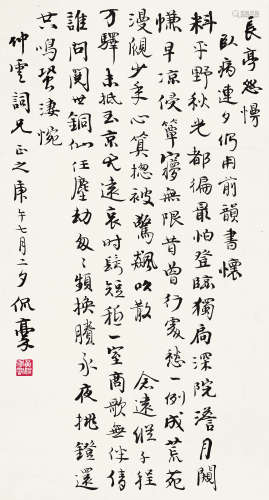 長亭怨慢
臥病連夕仍用前韻書懷
料平野秋光都徧最怕登臨獨扃深院澹月
早涼侵簟夢無限昔曾行處愁一例成荒苑
漫覷少年心算總被驚飆吹散 念遠縱千程
萬驛未抵玉京天遠哀時鬢短一室商歌無伴倩
誰問閱世銅仙任塵劫匆匆頻換賸永夜挑鐙還
共鳴蛩淒惋
仲雲詞兄正之庚午七月二夕佩